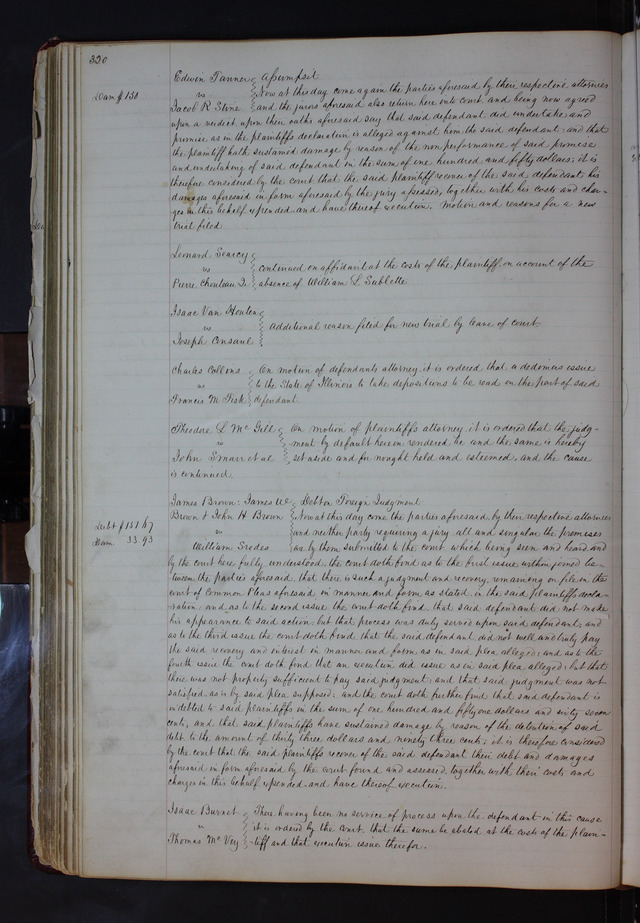 320
Edwin Tanner Assumpsit
Dam $150 vs Now at this day come again the parties aforesaid by their respective attornies
Jacob R. Stine and the jurors aforesaid also return here into court and being now agreed
upon a verdict upon their oaths aforesaid say that said defendant did undertake and
promise as in the plaintiffs declaration is alleged against him the said defendant: and that
the plaintiff hath sustained damage by reason of the non performance of said promise
and undertaking of said defendant in the sum of one hundred and fifty dollars; it is
therefore considered by the court that the said plaintiff recover of the said defendant his
damages aforesaid in form aforesaid by the jury assessed, together with his costs and char-
ges in this behalf expended and have thereof execution. Motion and reasons for a new
trial filed
Leonard Searcy
vs continued on affidavit at the costs of the plaintiff on account of the
Pierre Chouteau Jr. absence of William L. Sublette
Isaac Van Houten
vs Additional reason filed for new trial by leave of court
Joseph Consaul
Charles Collons On motion of defendants attorney it is ordered that a dedimus issue
vs to the State of Illinois to take depositions to be read on the part of said
Francis M. Fisk defendant
Theodore L. McGill On motion of plaintiffs attorney it is ordered that the judg-
vs ment by default herein rendered be and the same is hereby
John Smarr et al set aside and for nought held and esteemed, and the cause
is continued
James Brown: James Debt on Foreign Judgment
Debt $151 67 Brown & John H Brown Now at this day come the parties aforesaid by their respective attornies
Dam 33.93 vs and neither party requiring a jury all and singular the premises
William Srodes are by them submitted to the court which being seen and heard and
by the court here fully understood; the court doth find as to the first issue within joined be-
tween the parties aforesaid that there is such a judgment and recovery remaining on file in the
court of Common Pleas aforesaid in manner and form as stated in the said plaintiffs decla-
ration: and as to the second issue the court doth find that said defendant did not make
his appearance to said action but that process was duly served upon said defendant: and
as to the third issue the court doth find that the said defendant did not well and truly pay
the said recovery and interest in manner and form as in said plea alleged: and as to the
fourth issue the court doth find that an execution did issue as in said plea alleged; but that
there was not property sufficient to pay said judgment; and that said judgment was not
satisfied as is by said plea supposed: and the court doth further find that said defendant is
indebted to said plaintiffs in the sum of one hundred and fifty one dollars and sixty seven
cents, and that said plaintiffs have sustained damage by reason of the detention of said
debt to the amount of thirty three dollars and ninety three cents; it is therefore considered
by the court that the said plaintiffs recover of the said defendant their debt and damages
aforesaid in form aforesaid by the court found and assessed together with their costs and
charges in this behalf expended and have thereof execution.
Isaac Burnet There having been no service of process upon the defendant in this cause
" it is ordered by the court that the same be abated at the costs of the plain-
Thomas McVey tiff and that execution issue therefor.